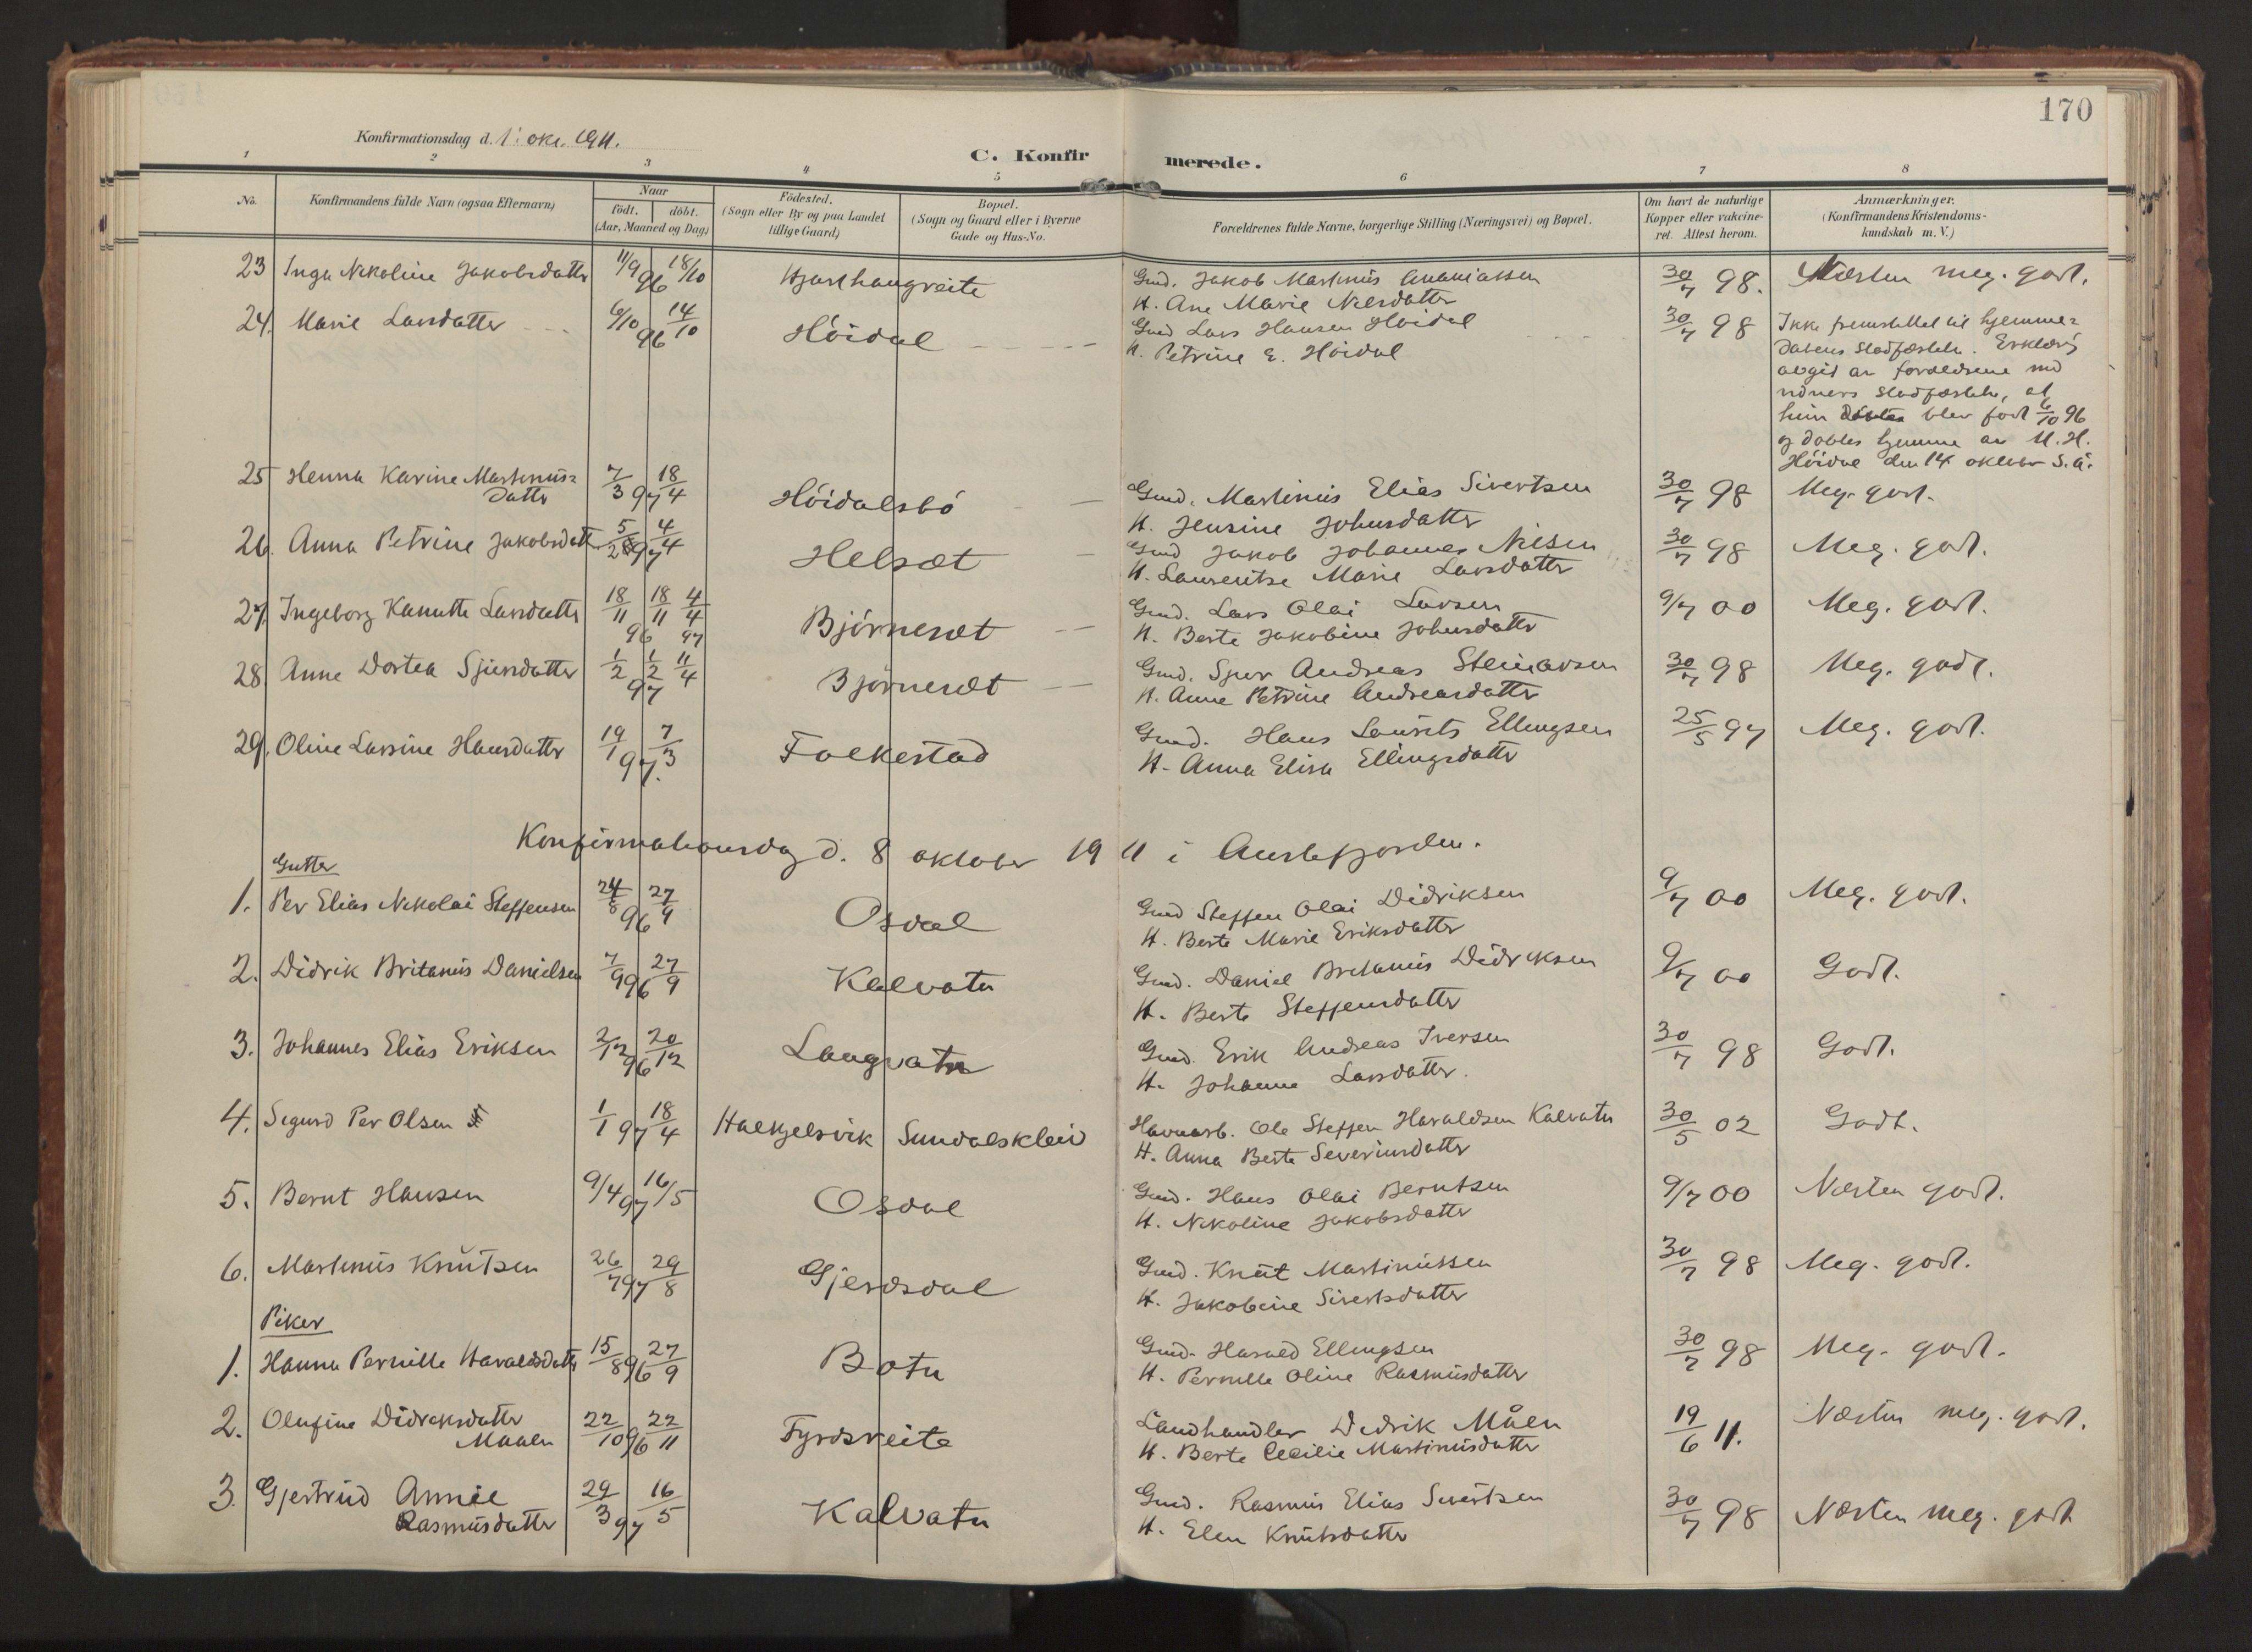 170
Konfirmationsdag d. 1' okt. 1911.
C. Konfirmerede.
1 2 3 4 5 6 7 8
No. Konfirmandens fulde Navn (ogsaa Efternavn) Naar födt. döbt. (Aar, Maaned og Dag) Födested. (Sogn eller By og paa Landet tillige Gaard) Bopæl. (Sogn og Gaard eller i Byerne Gade og Hus-No. Forældrenes fulde Navne, borgerlige Stilling (Næringsvei) og Bopæl. Om havt de naturlige Kopper eller vaccineret. Attest herom. Anmærkninger. (Konfirmandens Kristendomskundskab m. V.)
23 Inga Nikoline Jakobsdatter 11/9 96 18/10 Gmd. Jakob Martinus Ananiassen 30/7 98. Næsten meg. godt.
H. Ane Marie Nilsdatter
24. Marie Larsdatter 6/10 96 14/10 Höidal Gmd Lars Hansen Höidal 30/7 98 Ikke fremstillet til hjemme=
H. Petrine E. Höidal daabens stadfæstelse. Erklæring
avgit av forældrene med
vidners stadfæstelse, at
hun blev født 6/10 96
og döbtes hjemme av M. H.
Höidal den 14 oktober s. å.
25 Henna Karine Martinus= 7/3 97 18/4 Höidalsbö Gmd. Martinus Elias Sivertsen 30/7 98 Meg. godt.
datter H. Jensine Johnsdatter
26. Anna Petrine Jakobsdatt 5/2 97 4/4 Helsæt Gmd Jakob Johannes Nilsen 30/7 98 Meg. godt.
H. Laurentse Marie Larsdatter
27. Ingeborg Kanutte Larsdatter 18/11 96 18/11 4/4 97 Björnesæt Gmd. Lars Olai Larsen 9/7 00 Meg. godt.
H. Berte Jakobine Johnsdatter
28. Anne Dortea Sjursdatter 1/2 97 1/2 11/4 Björnesæt Gmd. Sjur Andreas Steinarsen 30/7 98 Meg. godt.
H. Anne Petrine Andreasdatter
29. Oline Larsine Hansdatter 19/1 97. 7/3 Folkestad Gmd. Hans Laurits Ellingsen 25/5 97 Meg. godt.
H. Anna Elisa Ellingsdatter
Konfirmationsdag d. 8 oktober 1911 i Austefjorden.
Gutter
1. Per Elias Nikolai Steffensen 24/8 96 27/9 Osdal Gmd Steffen Olai Didriksen 9/7 00 Meg. godt.
H. Berte Marie Eriksdatter
2. Didrik Britanus Danielsen 7/9 96 27/9 Kalvatn Gmd. Daniel Britanus Didriksen 9/7 00 Godt.
H. Berte Steffensdatter
3. Johannes Elias Eriksen 2/12 96 20/12 Langvatn Gmd. Erik Andreas Iversen 30/7 98 Godt.
H. Johanne Larsdatter.
4. Sigurd Per Olsen 1/1 97 18/4 Halkjelsvik Sundalskleiv Havnarb. Ole Steffen Haraldsen Kalvatn 30/5 02 Godt.
H. Anna Berte Severinsdatter
5. Bernt Hansen 9/4 97 16/5 Osdal Gmd. Hans Olai Berntsen 9/7 00 Næsten godt.
H. Nikoline Jakobsdatter
6. Martinus Knutsen 26/7 97 29/8 Gjerdsdal Gmd. Knut Martinussen 30/7 98 Meg. godt.
H. Jakobine Sivertsdatter
Piker
1. Hanna Pernille Haraldsdatter 15/8 96 27/9 Botn Gmd. Harald Ellingsen 30/7 98 Meg. godt.
H. Pernille Oline Rasmusdatter
2. Olufine Didriksdatter 22/10 96 22/11 Fyrdsreite Landhandler Didrik Målen 19/6 11. Næsten meg. godt.
Maalen H. Berte Cecilie Martinusdatter
3. Gjertrud Annie 29/3 97 16/5 Kalvatn Gmd. Rasmus Elias Sivertsen 30/7 98 Næsten meg. godt
Rasmusdatter H. Elen Knutsdatter